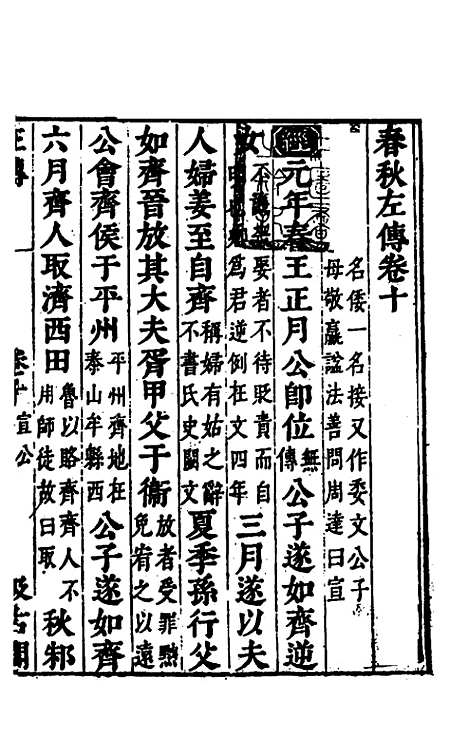 春秋左傳卷十
名倭一名接又作委文公子
母敬嬴諡法善問周達曰宣
經元年春王正月公即位無傳公子遂如齊逆
女不譏喪娶者不待貶責而自明也卿爲君逆例在文四年三月遂以夫
人婦姜至自齊稱婦有姑之辭不書氏史闕文夏季孫行父
如齊晉放其大夫胥甲父于衛放者受罪黜免宥之以遠
公會齊侯于平州平州齊地在泰山牟縣西公子遂如齊
六月齊人取濟西田魯以賂齊齊人不用師徒故曰取秋邾
左傳
卷十宣公
汲古閣